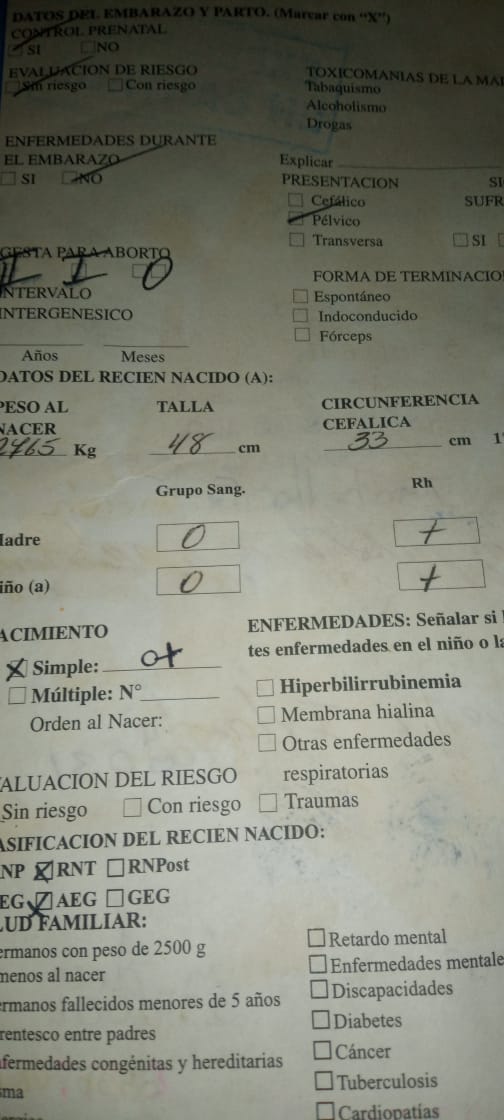 DATOS DEL EMBARAZO Y PARTO. (Marcar con "X")
CONTROL PRENATAL
SI NO
EVALUACION DE RIESGO
Sin riesgo Con riesgo
TOXICOMANIAS DE LA MA
Tabaquismo
Alcoholismo
Drogas
ENFERMEDADES DURANTE
EL EMBARAZO
SI NO
Explicar
PRESENTACION
Cefálico SUFR
Pélvico
Transversa SI
GESTA PARA ABORTO
II I O
INTERVALO
INTERGENESICO
Años Meses
FORMA DE TERMINACIO
Espontáneo
Indoconducido
Fórceps
DATOS DEL RECIEN NACIDO (A):
PESO AL
NACER
2765 Kg
TALLA
48 cm
CIRCUNFERENCIA
CEFALICA
33 cm
Grupo Sang. Rh
Madre O +
iño (a) O +
ACIMIENTO
X Simple: O+
Múltiple: N°
Orden al Nacer:
ENFERMEDADES: Señalar si
tes enfermedades en el niño o la
Hiperbilirrubinemia
Membrana hialina
Otras enfermedades
respiratorias
Traumas
ALUACION DEL RIESGO
Sin riesgo Con riesgo
ASIFICACION DEL RECIEN NACIDO:
NP X RNT RNPost
EG X AEG GEG
LUD FAMILIAR:
ermanos con peso de 2500 g
menos al nacer
ermanos fallecidos menores de 5 años
rentesco entre padres
nfermedades congénitas y hereditarias
sma
Retardo mental
Enfermedades mentale
Discapacidades
Diabetes
Cáncer
Tuberculosis
Cardiopatías